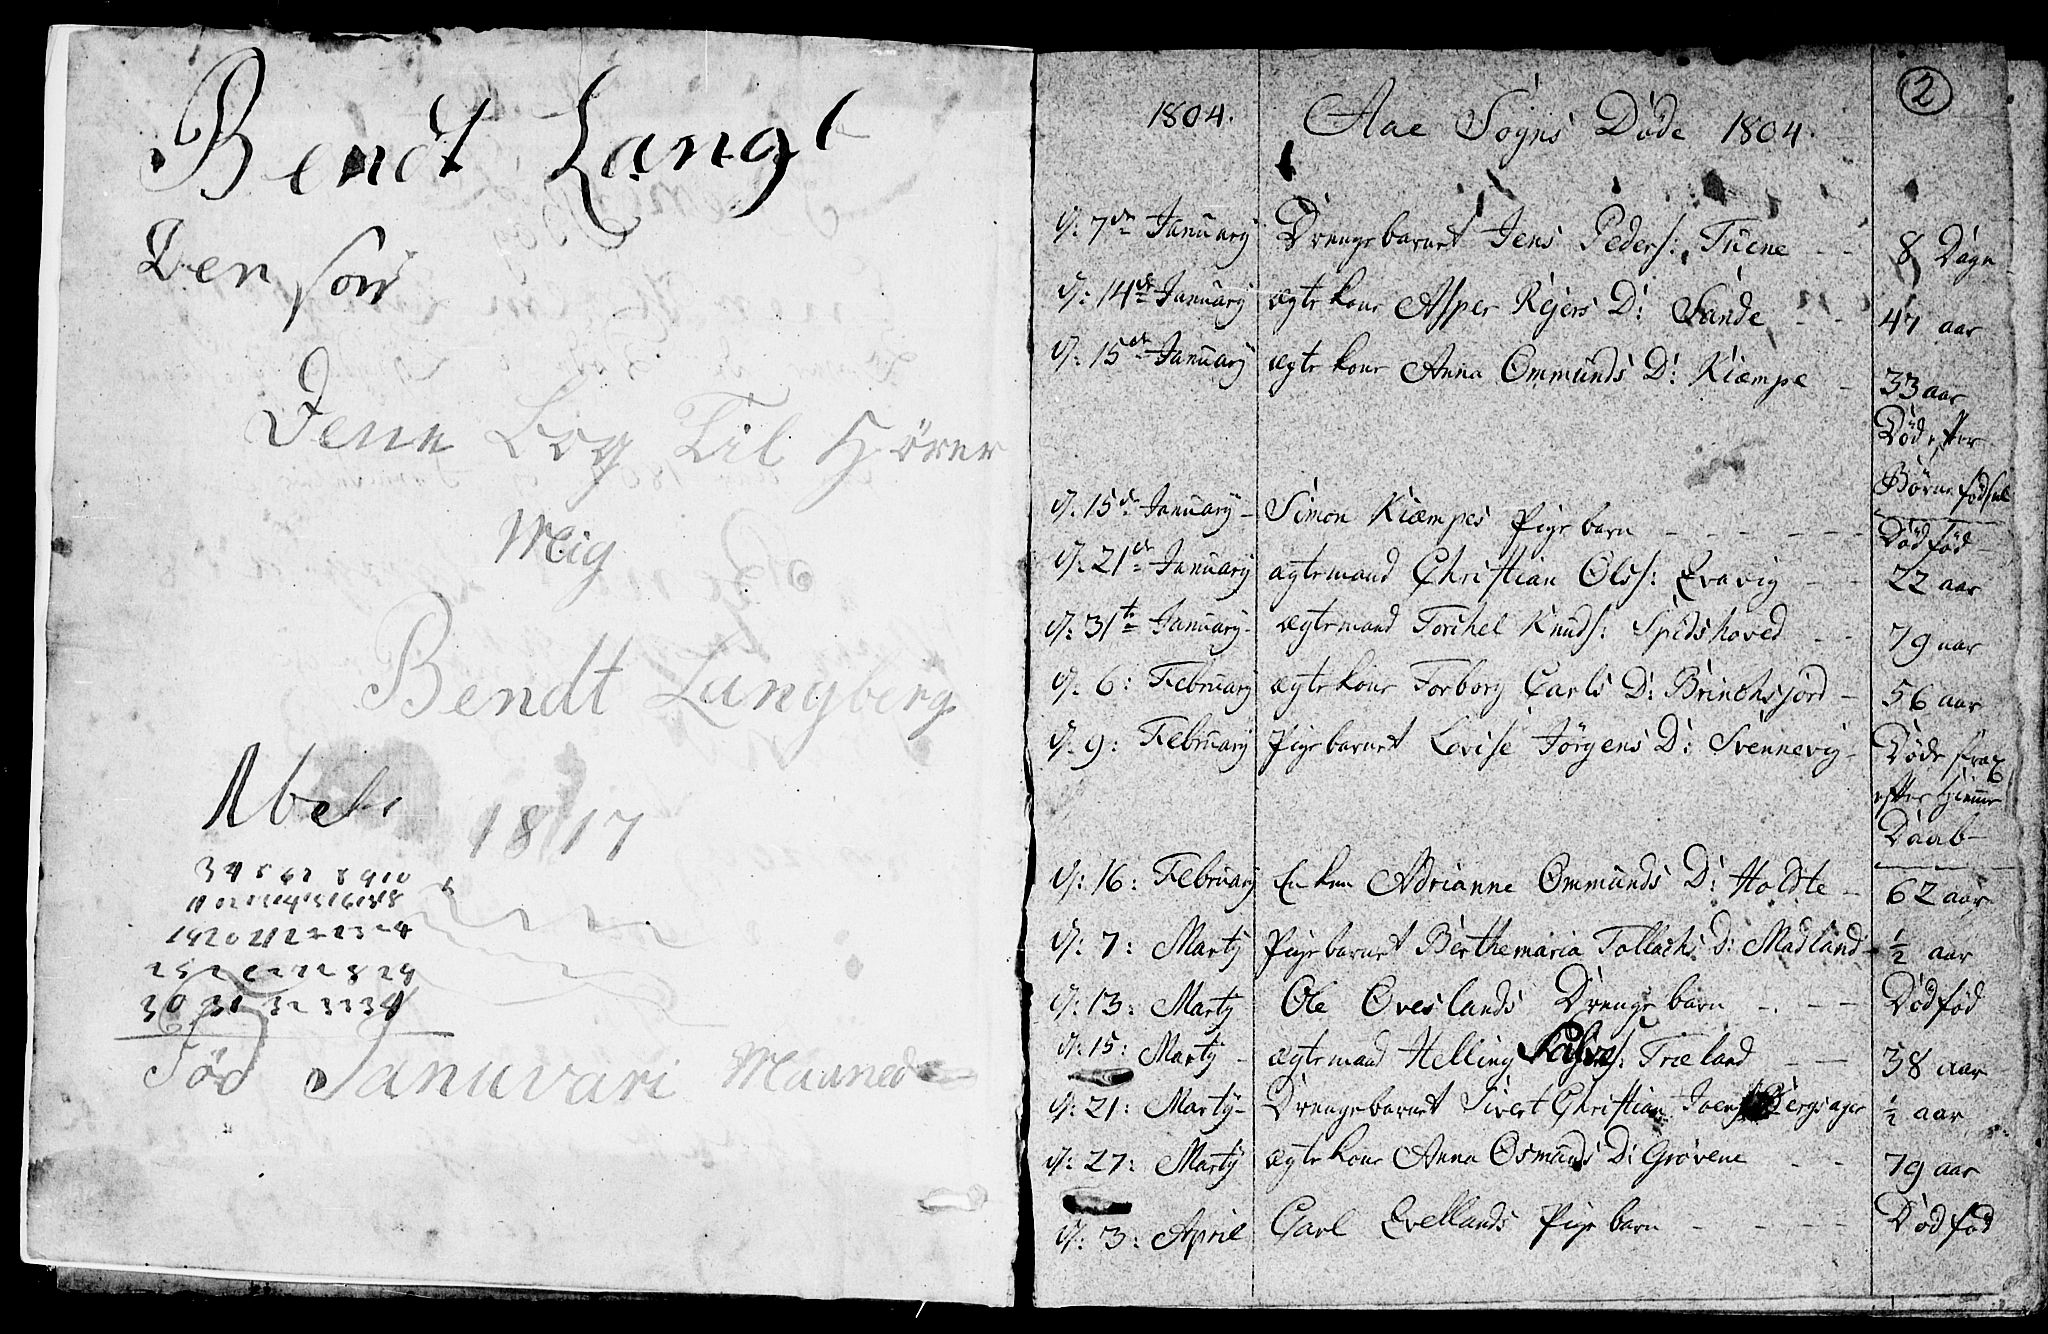 Bendt Lang
Den son
Dene bog Til Hörer
Mig
Bendt Langberg
Abel
1817
3 4 5 6 7 8 9 10
19 20 21 22 23 24
30 31 32 33 34
Fød Januvari Maaned
2
1804. Aae Sogns Døde 1804.
d: 7de January Drengebarnet Jens Peders: Tuene - - 8 Dage
d: 14de January ægte kone Asper Rejers D: Sande - - 47 aar
d: 15de January ægte kone Anna Ommunds D: Kiæmpe - 33 aar
Død efter
Børne fødsel
d: 15de January - Simon Kiæmpes Pige barn - - - - - Dødfød -
d: 21de January ægtemand Christian Ols: Evavig - - 22 aar
d: 31te January - ægtemand Torchel Knuds: Spidshoved - - 79 aar
d: 6: February ægte kone Torborg Carls D: Brinchsjord - 56 aar
d: 9: February Pigebarnet Lovise Jørgens D: Svennevig - Døde strax
efter Hjemme
Daab -
d: 16: February Enken Adrianne Ommunds D: Holdte - 62 aar
d: 7: Marty Pigebarnet Berthemaria Tollachs D: Madland - ½ aar
d: 13: Marty Ole Øveslands Drenge barn - - - Dødfød
d: 15: Marty - ægtemand Helling Salves: Træland - - 38 aar
d: 21: Marty - Drengebarnet Sivert Christian Joens: Bergsager ½ aar
d: 27: Marty ægte kone Anna Osmunds D: Grøvene - - 79 aar
d: 3: April Carl Evellands Pige barn - - - - Død fød